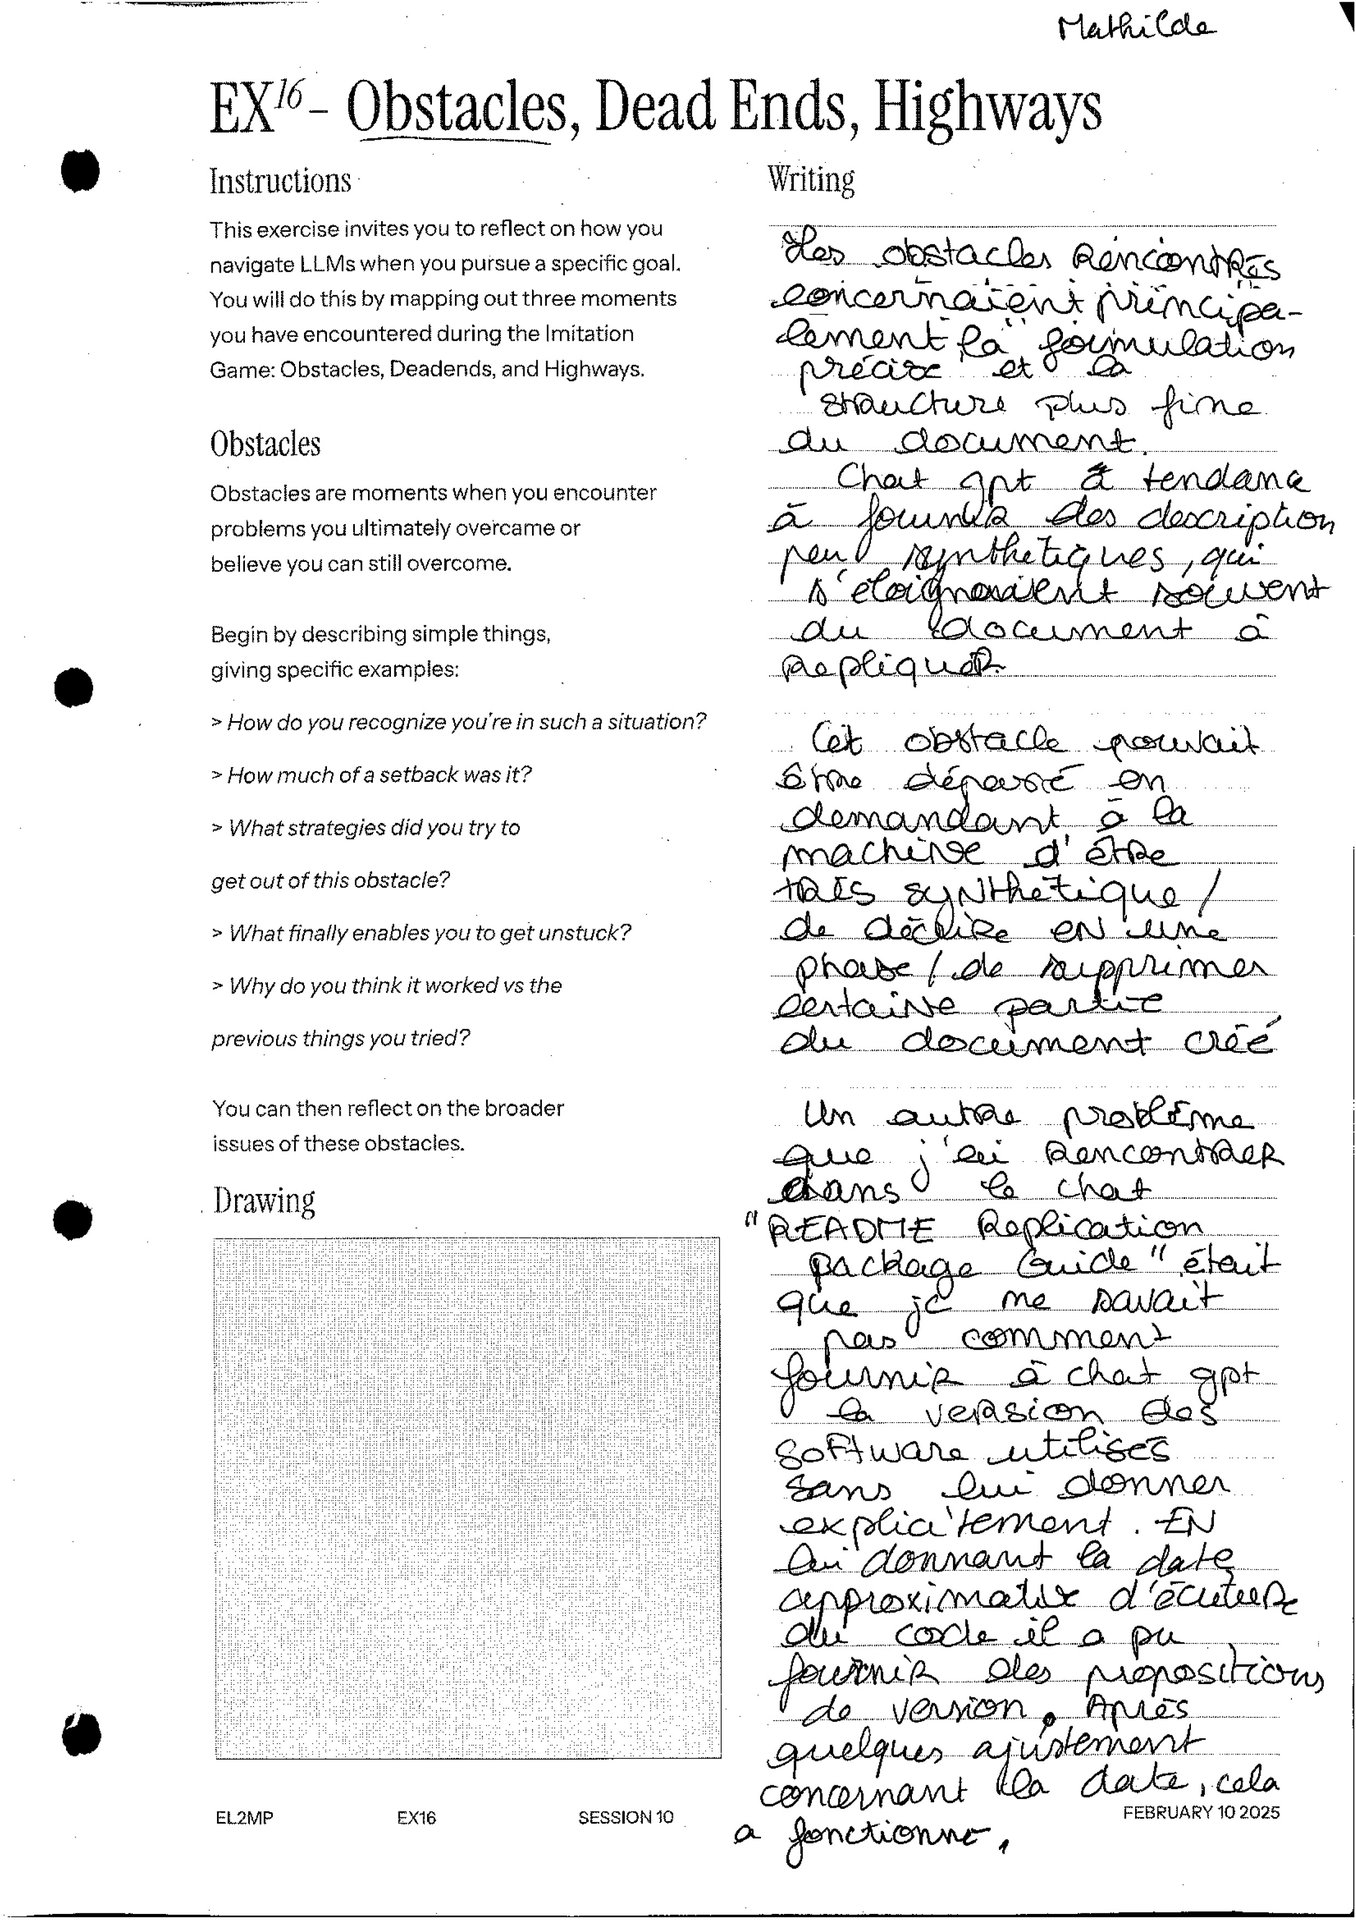 Mathilde
EX16 - Obstacles, Dead Ends, Highways
Instructions
This exercise invites you to reflect on how you
navigate LLMs when you pursue a specific goal.
You will do this by mapping out three moments
you have encountered during the Imitation
Game: Obstacles, Deadends, and Highways.
Obstacles
Obstacles are moments when you encounter
problems you ultimately overcame or
believe you can still overcome.
Begin by describing simple things,
giving specific examples:
> How do you recognize you're in such a situation?
> How much of a setback was it?
> What strategies did you try to
get out of this obstacle?
> What finally enables you to get unstuck?
> Why do you think it worked vs the
previous things you tried?
You can then reflect on the broader
issues of these obstacles.
Drawing
Writing
Les obstacles rencontrés
concernaient principa-
lement la "formulation
précise" et la
structure plus fine
du document.
Chat gpt a tendance
à fournir des description
peu synthétiques, qui
s'éloignaient souvent
du document à
repliquer.
Cet obstacle pouvait
être dépassé en
demandant à la
machine d'être
très synthétique /
de décrire en une
phase / de supprimer
certaine partie
du document créé
Un autre problème
que j'ai rencontrer
dans le chat
"README Replication
package Guide" était
que je ne savait
pas comment
fournir à chat gpt
la version des
software utilisés
sans lui donner
explicitement. EN
lui donnant la date
approximative d'écuture
du code il a pu
fournir des propositions
de version. Après
quelques ajustement
concernant la date, cela
a fonctionné.
EL2MP EX16 SESSION 10 FEBRUARY 10 2025